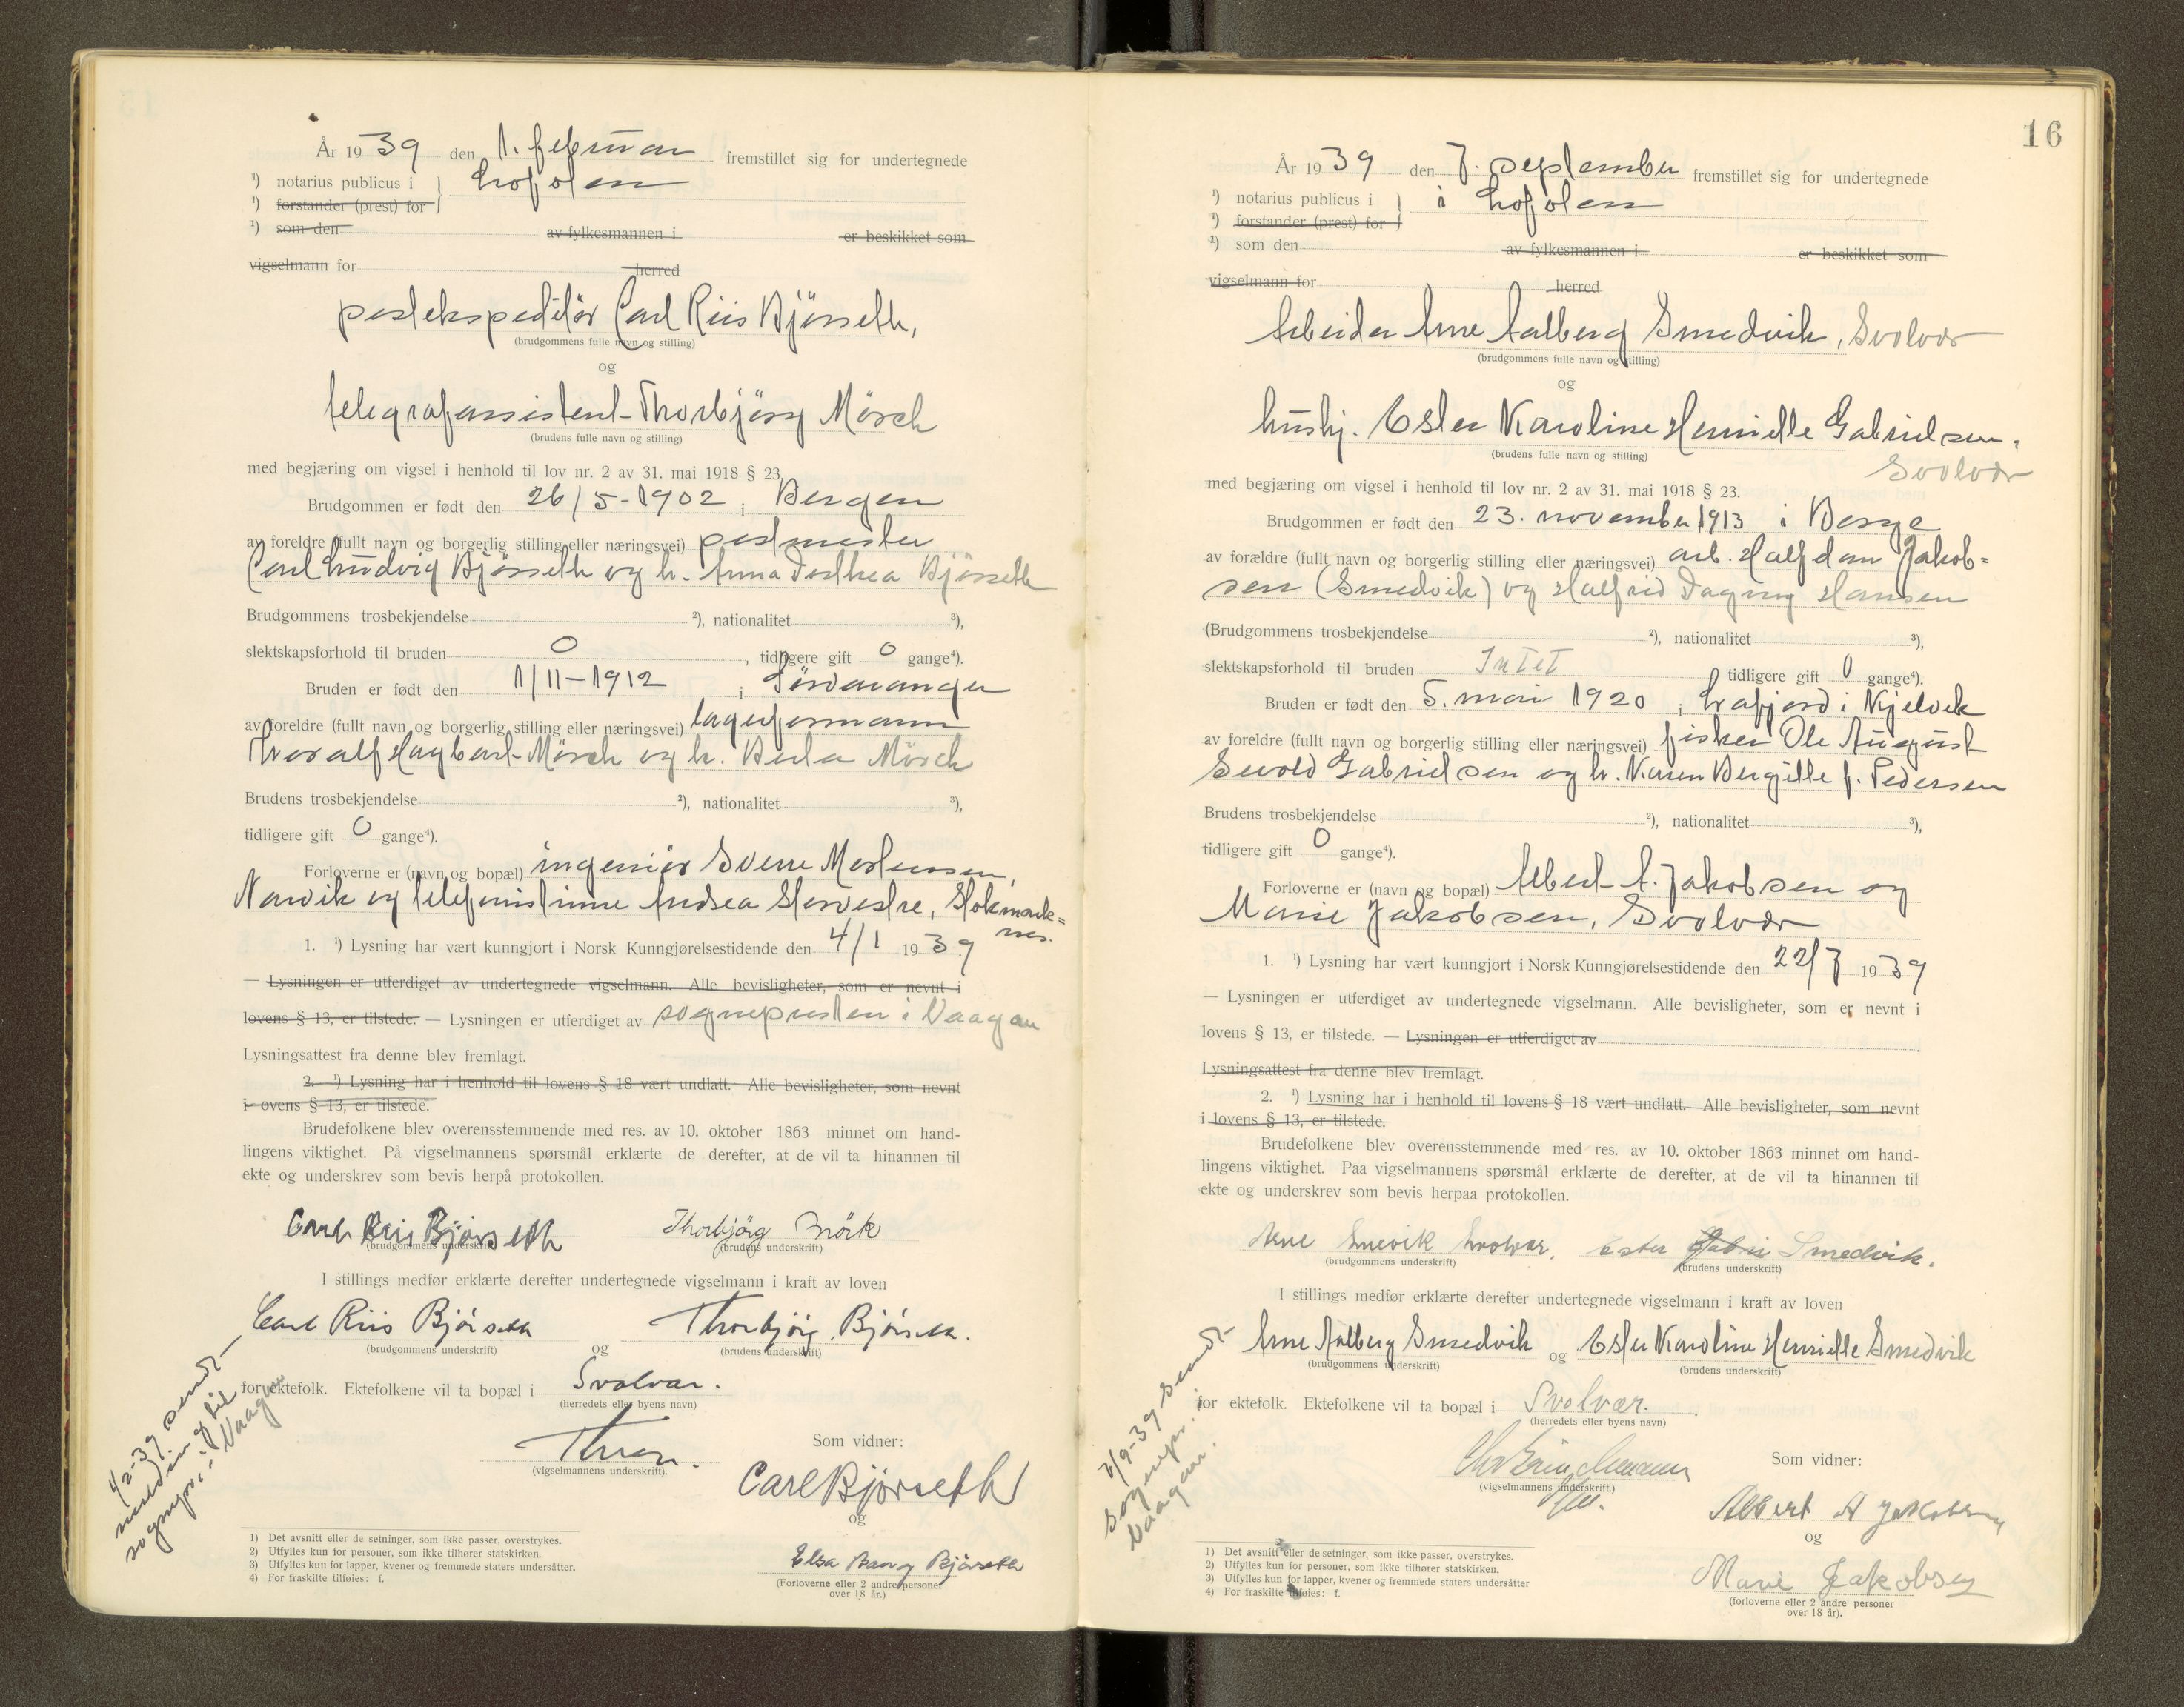 År 1939 den 1. februar fremstillet sig for undertegnede
¹) notarius publicus i Lofoten
¹) forstander (prest) for
¹) som den av fylkesmannen i er beskikket som
vigselmann for herred
postekspeditør Carl Riis Bjørseth,
(brudgommens fulle navn og stilling)
og
telegrafassistent Thorbjørg Mörch
(brudens fulle navn og stilling)
med begjæring om vigsel i henhold til lov nr. 2 av 31. mai 1918 § 23.
Brudgommen er født den 26/5-1902 i Bergen
av foreldre (fullt navn og borgerlig stilling eller næringsvei) postmester
Carl Ludvig Bjørseth og h. Anna Dorthea Bjørseth
Brudgommens trosbekjendelse ²), nationalitet ³),
slektskapsforhold til bruden 0, tidligere gift 0 gange⁴).
Bruden er født den 1/11-1912 i Sørvaranger
av foreldre (fullt navn og borgerlig stilling eller næringsvei) lagerformann
Thoralf Hagbart Mörch og h. Berta Mörch
Brudens trosbekjendelse ²), nationalitet ³),
tidligere gift 0 gange⁴).
Forloverne er (navn og bopæl) ingeniør Sverre Mortensen,
Narvik og telefonistinne Andrea Storvestre, Stokmark=
nes.
1. ¹) Lysning har vært kunngjort i Norsk Kunngjørelsestidende den 4/1 1939
— Lysningen er utferdiget av undertegnede vigselmann. Alle bevisligheter, som er nevnt i
lovens § 13, er tilstede. — Lysningen er utferdiget av sognepresten i Vaagan
Lysningsattest fra denne blev fremlagt.
2. ¹) Lysning har i henhold til lovens § 18 vært undlatt. Alle bevisligheter, som nevnt
i ovens § 13, er tilstede.
Brudefolkene blev overensstemmende med res. av 10. oktober 1863 minnet om hand-
lingens viktighet. På vigselmannens spørsmål erklærte de derefter, at de vil ta hinannen til
ekte og underskrev som bevis herpå protokollen.
Carl Riis Bjørseth Thorbjörg Mörk
(brudgommens underskrift) (brudens underskrift)
I stillings medfør erklærte derefter undertegnede vigselmann i kraft av loven
Carl Riis Bjørseth og Thorbjørg Bjørseth.
(brudgommens underskrift) (brudens underskrift)
for ektefolk. Ektefolkene vil ta bopæl i Svolvær.
(herredets eller byens navn)
(vigselmannens underskrift).
Som vidner:
Carl Bjørseth
og
Elsa Bang Bjørseth
(Forloverne eller 2 andre personer
over 18 år.)
1/2-39 sendt
melding til
sognepr. i Vaagan
1) Det avsnitt eller de setninger, som ikke passer, overstrykes.
2) Utfylles kun for personer, som ikke tilhører statskirken.
3) Utfylles kun for lapper, kvener og fremmede staters undersåtter.
4) For fraskilte tilføies: f.
16
År 1939 den 7. september fremstillet sig for undertegnede
¹) notarius publicus i i Lofoten
¹) forstander (prest) for
²) som den av fylkesmannen i er beskikket som
vigselmann for herred
Arbeider Arne Aalberg Smedvik, Svolvær
(brudgommens fulle navn og stilling)
og
hushj. Ester Karoline Henriette Gabrielsen,
(brudens fulle navn og stilling)
Svolvær
med begjæring om vigsel i henhold til lov nr. 2 av 31. mai 1918 § 23.
Brudgommen er født den 23. november 1913 i Borge
av forældre (fullt navn og borgerlig stilling eller næringsvei) arb. Halfdan Jakob=
sen (Smedvik) og Halfrid Dagny Hansen
(Brudgommens trosbekjendelse ²), nationalitet ³),
slektskapsforhold til bruden Intet tidligere gift 0 gange⁴).
Bruden er født den 5. mai 1920 i Lafjord i Kjelvik
av foreldre (fullt navn og borgerlig stilling eller næringsvei) fisker Ole August
Sevold Gabrielsen og h. Karen Bergitte f. Pedersen
Brudens trosbekjendelse ²), nationalitet ³),
tidligere gift 0 gange⁴).
Forloverne er (navn og bopæl) Albert A. Jakobsen og
Marie Jakobsen, Svolvær
1. ¹) Lysning har vært kunngjort i Norsk Kunngjørelsestidende den 22/7 1939
— Lysningen er utferdiget av undertegnede vigselmann. Alle bevisligheter, som er nevnt i
lovens § 13, er tilstede. — Lysningen er utferdiget av
Lysningsattest fra denne blev fremlagt.
2. ¹) Lysning har i henhold til lovens § 18 vært undlatt. Alle bevisligheter, som nevnt
i lovens § 13, er tilstede.
Brudefolkene blev overensstemmende med res. av 10. oktober 1863 minnet om hand-
lingens viktighet. Paa vigselmannens spørsmål erklærte de derefter, at de vil ta hinannen til
ekte og underskrev som bevis herpaa protokollen.
Arne Smevik Svolvær. Ester Gabri Smedvik.
(brudgommens underskrift) (brudens underskrift)
I stillings medfør erklærte derefter undertegnede vigselmann i kraft av loven
Arne Aalberg Smedvik og Ester Karoline Henriette Smedvik
(brudgommens underskrift) (brudens underskrift)
for ektefolk. Ektefolkene vil ta bopæl i Svolvær.
(herredets eller byens navn)
(vigselmannens underskrift.)
Som vidner:
Albert A Jakobsen
og
Marie Jakobsen
(forloverne eller 2 andre personer
over 18 år).
7/9-39 sendt
sognepr. i
Vaagan.
1) Det avsnitt eller de setninger, som ikke passer, overstrykes.
2) Utfylles kun for personer, som ikke tilhører statskirken.
3) Utfylles kun for lapper, kvener og fremmede staters undersåtter
4) For fraskilte tilføies: f.